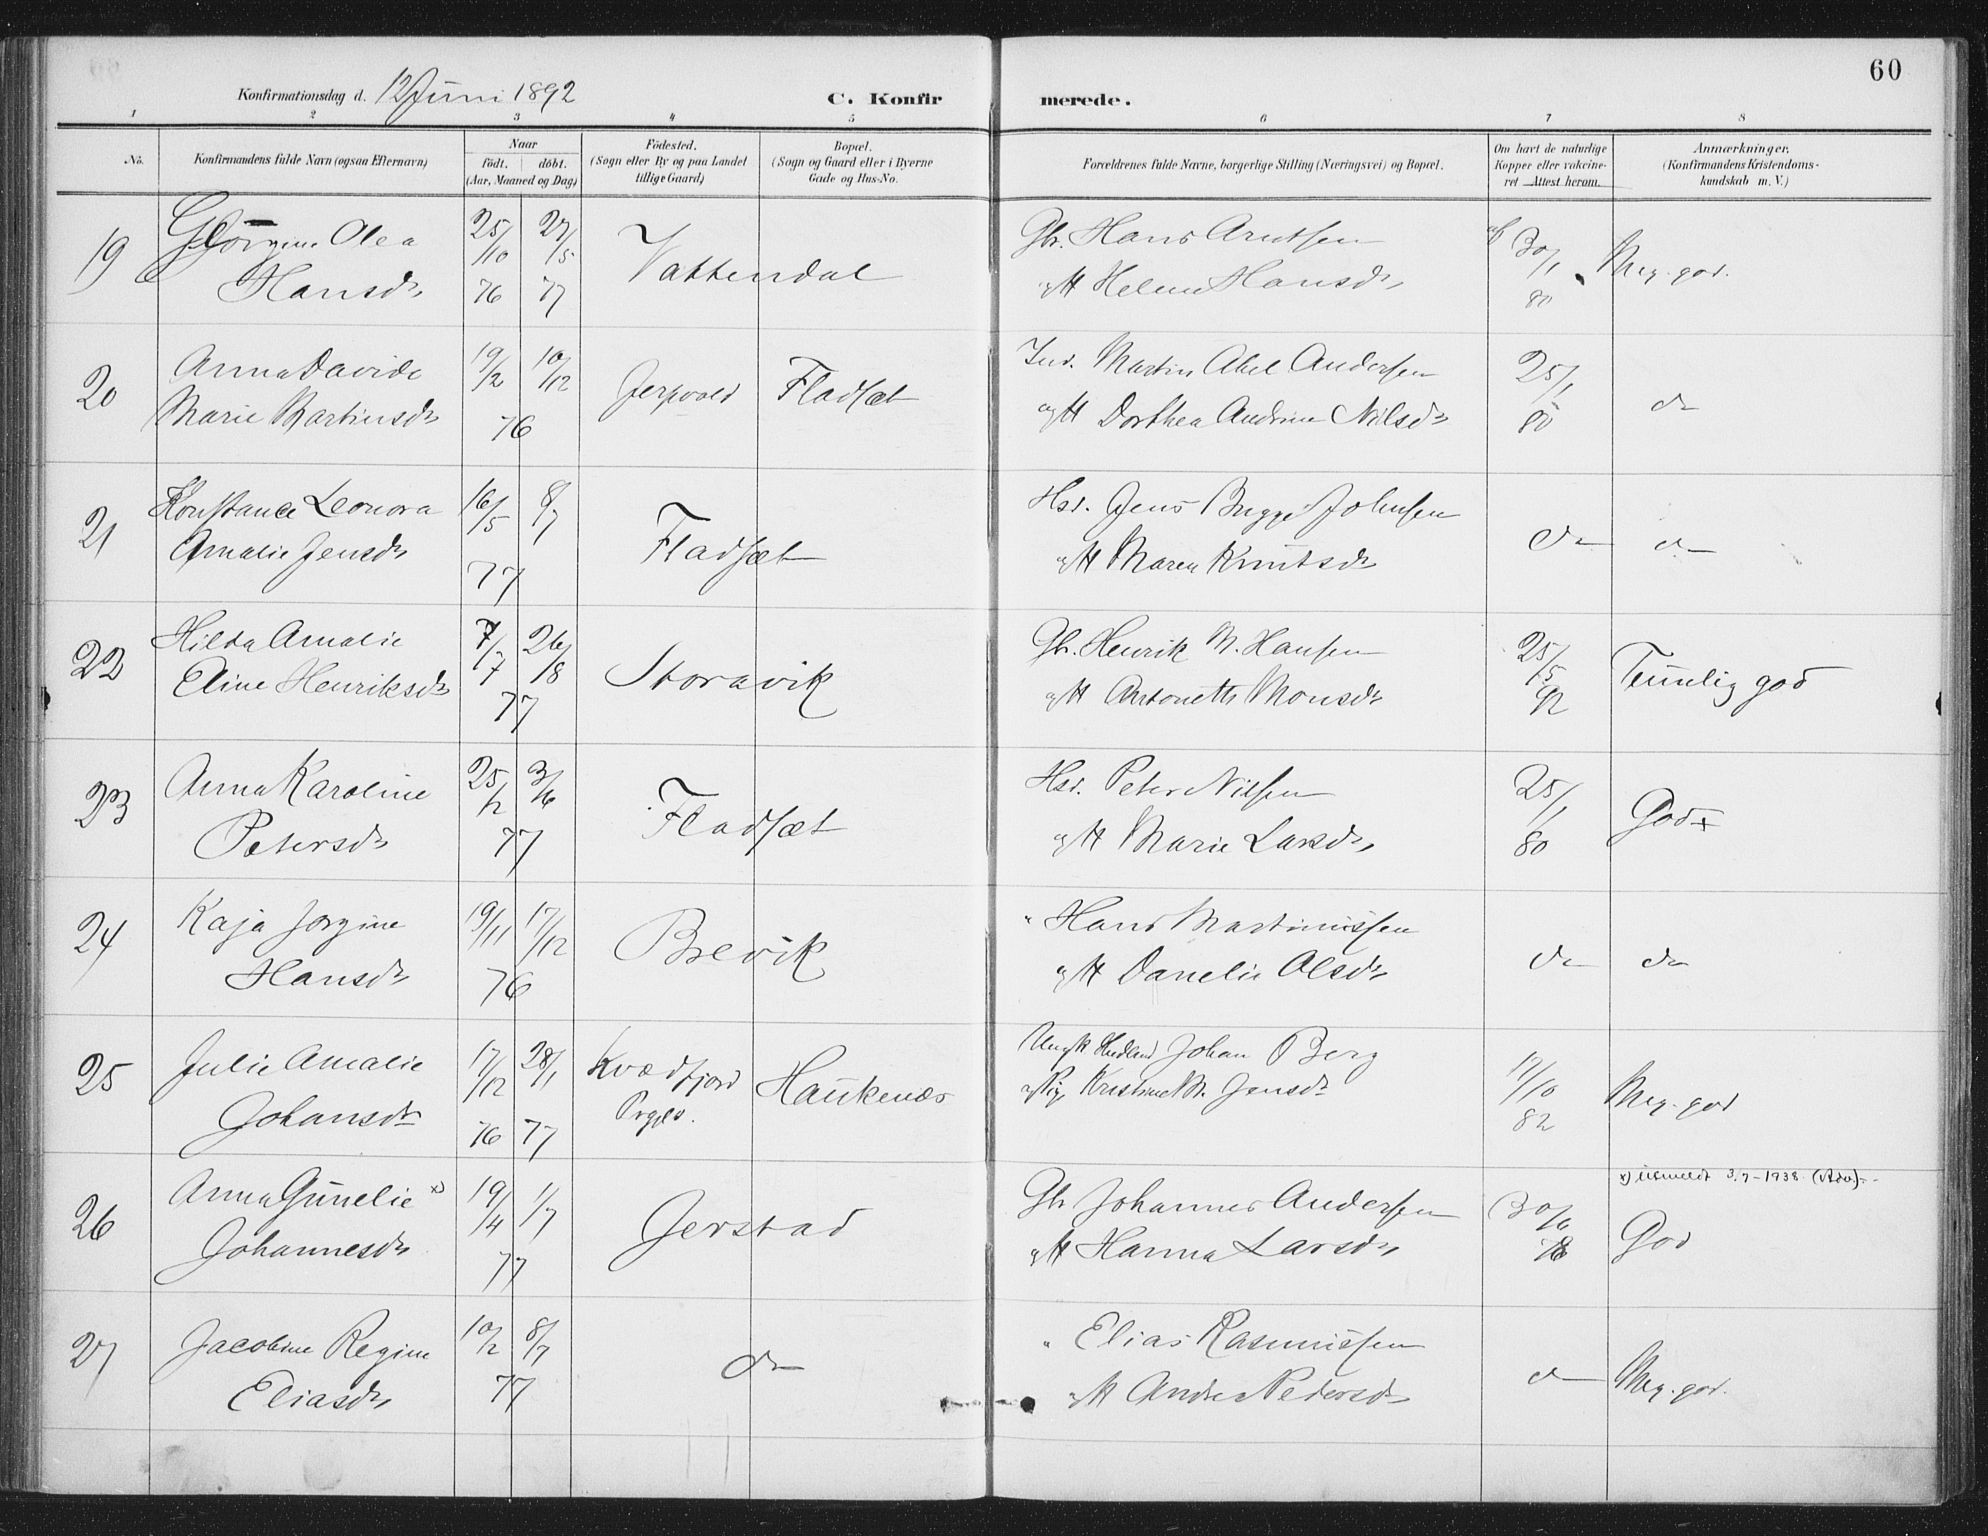 60
Konfirmationsdag d. 12 Juni 1892
C. Konfir merede.
1 2 3 4 5 6 7 8
No.
Konfirmandens fulde Navn (ogsaa Efternavn)
Naar
födt. döbt.
(Aar, Maaned og Dag)
Födested.
(Sogn eller By og paa Landet
tillige Gaard)
Bopæl.
(Sogn og Gaard eller i Byerne
Gade og Hus-No.
Forældrenes fulde Navne, borgerlige Stilling (Næringsvei) og Bopæl.
Om havt de naturlige
Kopper eller vakcine-
ret Attest herom.
Anmærkninger.
(Konfirmandens Kristendoms-
kundskab m. V.)
19 Jörgine Olea
Hansdr
25/10 76 27/5 77
Vattendal
Gbr. Hans Arntsen
og H Helene Hansdr
30/1 80
Meg. god.
20 Anna Davide
Marie Martinsdr
19/2 10/12
76
Jerpvold Fladsæt
Ind. Martin Abel Andersen
og H Dorthea Andrine Nilsdr
25/1 80
do
21 Konstance Leonora
Amalie Jensdr
16/5 8/7
77
Fladsæt
Hsd. Jens Bugge Johnsen
og H Maren Knutsdr
do do
22 Hilda Amalie
Eline Henriksdr
7/7 26/8
77
Storavik
Gbr. Henrik M. Hansen
og H Antonette Monsdr
25/5 92
Temmlig god
23 Anna Karoline
Petersdr
25/2 3/6
77
Fladsæt
Hsd. Peter Nilsen
og H Marie Larsdr
25/1 80
God +
24 Kaja Jorgine
Hansdr
19/11 17/12
76
Brevik
" Hans Martinussen
og H Danelie Olsdr
do do
25 Julie Amalie
Johansdr
17/12 76 28/1 77
Kvædfjord
Prgjld.
Haukenæs
Ungk Johan Berg
og Pige Kristine M. Jensdr
17/10 82
Meg. god
26 Anna Gunelie x)
Johannesdr
19/4 1/7
77
Jerstad
Gbr Johannes Andersen
og H Hanna Larsdr
30/6 78
x) utmeldt 3.7-1938. (Adv).-
God
27 Jacobine Regine
Eliasdr
10/2 8/7
77
do
" Elias Rasmussen
og H Andrea Pedersdr
do
Meg. god.